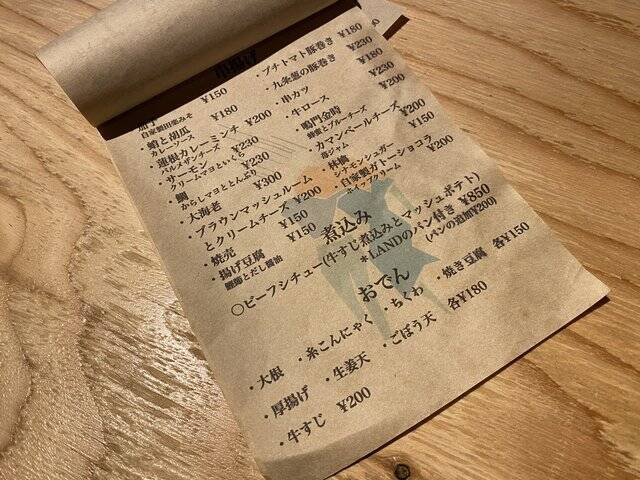 串揚げ
茄子 ¥150
自家製田楽みそ
・蛸と胡瓜 ¥180
カレーソース
・蓮根カレーミンチ ¥200
パルメザンチーズ
・サーモン ¥230
クリームマヨといくら
・鯛 ¥230
からしマヨととんぶり
・大海老 ¥300
・ブラウンマッシュルーム
とクリームチーズ ¥200
・焼売 ¥150
・揚げ豆腐 ¥150
鰹節とだし醤油
・プチトマト豚巻き ¥180
・九条葱の豚巻き ¥230
・串カツ ¥180
・牛ロース ¥230
・鳴門金時 ¥200
蜂蜜とブルーチーズ
・カマンベールチーズ ¥200
苺ジャム
・林檎 ¥150
シナモンシュガー
・自家製ガトーショコラ ¥200
ホイップクリーム
煮込み
○ビーフシチュー(牛すじ煮込みとマッシュポテト) ¥850
*LANDのパン付き
(パンの追加¥200)
おでん
・大根 ・糸こんにゃく ・ちくわ ・焼き豆腐 各¥150
・厚揚げ ・生姜天 ・ごぼう天 各¥180
・牛すじ ¥200